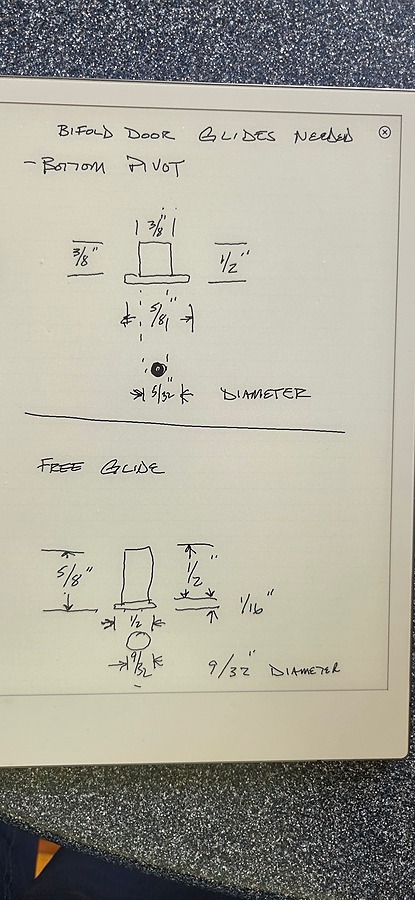 BIFOLD DOOR GLIDES NEEDED
- BOTTOM PIVOT
3/8"
3/8" 1/2"
5/8"
5/32" DIAMETER
FREE GLIDE
5/8" 1/2"
1/16"
1/2
9/32 9/32" DIAMETER